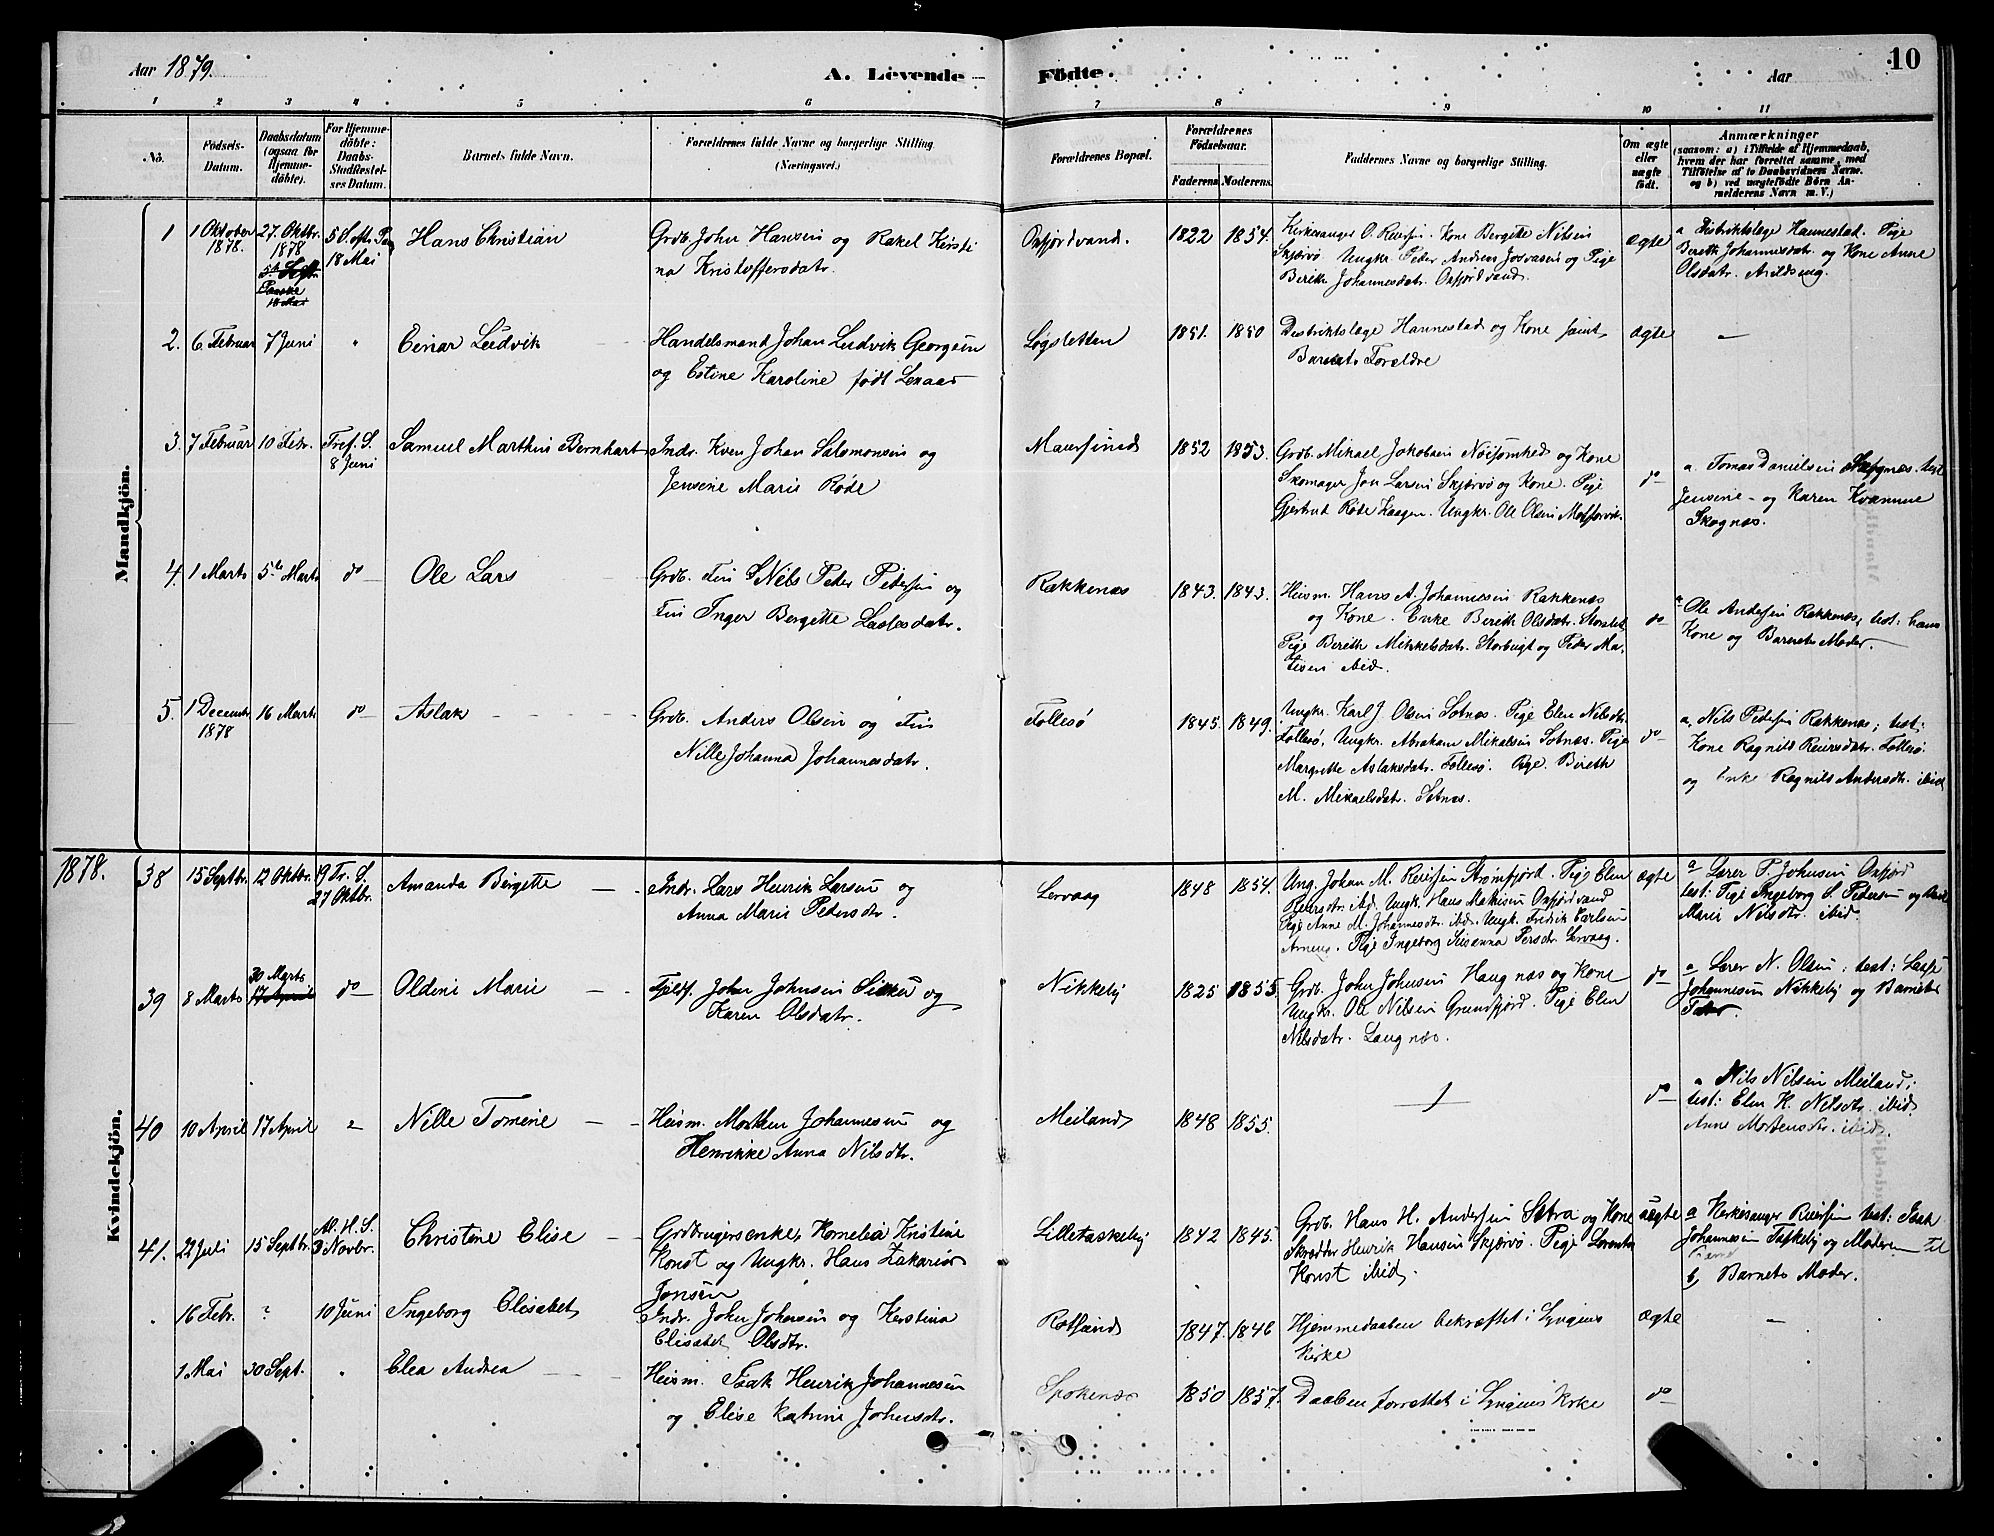 Aar 1879.
A. Levende
Födte.
Aar
10
1 2 3 4 5 6 7 8 9 10 11
No.
Födsels-
Datum.
Daabsdatum
(ogsaa for
Hjemme-
döbte).
For Hjemme-
döbte:
Daabs-
Stadfæstel-
ses Datum.
Barnets fulde Navn.
Forældrenes fulde Navne og borgerlige Stilling
(Næringsvei.)
Forældrenes Bopæl.
Forældrenes
Födselsaar.
Faderens
Moderens.
Faddernes Navne og borgerlige Stilling.
Om ægte
eller
uægte
födt.
Anmærkninger
(saasom: a) i Tilfælde af Hjemmedaab,
hvem der har forrettet samme, med
Tilföielse af to Daabsvidners Navne.
og b) ved uægtefödte Börn An-
melderens Navn m. V.)
Mandkjön.
1
1 Oktober
1878.
27. Oktbr.
1878
18 Mai
Hans Christian
Grdb. John Hansen og Rakel Kirsti
na Kristoffersdatr.
Oxfjordvand.
1822
1854.
Kirkesanger O. Reiersen. Kone Bergitte Nilsen
Skjærvö Ungkr. Peder Andreas Josvasen og Pige
Berith Johannesdatr. Oxfjordvand.
ægte
a Distriktslæge Hannestad. Pige
Bereth Johannesdatr. og Kone Anne
Olsdatr. Arildseng.
2.
6 Februar
7 Juni
"
Einar Ludvik
Handelsmand Johan Ludvik Georgsen
og Estine Karoline født Lenaas
Løgsletten
1851.
1850
Distriktslæge Hannestad og Kone samt
Barnets Forældre
ægte
3.
7 Februar
10 Febr.
Tref. S.
8 Juni
Samuel Marthin Bernhart
Indr. Kven Johan Salomonsen og
Jensine Marie Røde
Maursund
1852
1853.
Grdb. Mikael Jakobsen Nöisomhed og Kone
Skomager Jon Larsen Skjærvö og Kone. Pige
Gjertrud Röde Kaagen. Ungkr. Ole Olsen
do
a. Tomas Danielsen Skognæs. test
Jensine og Karen Kvænnue
Skognæs.
4.
1 Marts
5te Marts
do
Ole Lars
Grdb. Fin Nils Peder Pedersen og
Fin Inger Bergitte Larsdatr.
Rakkenæs
1843.
1843.
Heism. Hans A. Johannesen Rakkenæs
og Kone. Enke Berith Olsdatr. Storslet
Pige Bereth Mikkelsdatr. Storbugt og Peder Ma-
tisen ibid.
do
a Ole Andersen Rakkenæs, test: hans
Kone og Barnets Moder.
5.
1 Decembr
1878
16 Marts
do
Aslak
Grdb. Anders Olsen og Fin
Nille Johanna Johannesdatr.
Follesö
1845.
1849.
Ungkr. Karl J. Olsen Sotnæs. Pige Elen Nilsdtr.
Follesö, Ungkr. Abraham Mikalsen Sotnæs. Pige
Margrethe Aslaksdatr. Follesö. Pige. Bireth
M. Mikaelsdatr. Sotnæs.
do
a. Nils Pedersen Rakkenæs; test:
Kone Ragnild Reiersdatr. Follesö
og Enke Ragnild Andersdtr. ibid
1878.
Kvindekjön.
38
15 Septbr.
12 Oktbr.
19 Tr. S.
27 Oktbr.
Amanda Birgette
Indr. Lars Henrik Larsen og
Anna Marie Pedersdtr.
Lervaag
1848
1854.
Ung. Johan M. Reiersen Strømfjord. Pige Elen
Reiersdtr. ibid. Ungk. Hans Mathisen Oxfjordvand
Pige Anne M. Johannesdtr. ibid. Ungk. Fredrik Carlsen
Pige Ingeborg Susanna Persdtr Lervaag.
ægte
a Lærer P. Johnsen Oxfjord
test: Pige Ingeborg S. Pedersen og
Marie Nilsdtr. ibid.
39
8 Marts
30 Marts
17 April
do
Oldine Marie
John Johnsen og
Karen Olsdatr.
Nikkeby
1825
1855.
Grdb. John Johnsen Haugnæs og Kone
Ungkr. Ole Nilsen Grundfjord. Pige Elen
Nilsdatr. Laugnæs.
do
a Lærer N. Olsen; test:
Johannesen Nikkeby og Barnets
Fader.
40
10 April
17 April
Nille Tomine
Heism. Morten Johannesen og
Henrikke Anna Nilsdtr.
Meiland
1848
1855.
do
a Nils Nilsen Meiland;
test: Elen K. Nilsdtr. ibid.
Anne Mortensdtr. ibid.
41.
22 Juli
15 Septbr.
Al. H. S.
3 Novbr.
Christine Elise
Grdbrugersenke, Kornelia Kristine
Konst og Ungkr. Hans Zakarias
Jonsen
Lilletaskeby
1842
1845.
Grdb. Hans H. Andersen Sætra og Kone
Skrædder Henrik Hansen Skjærvö. Pige Lorentse
Konst ibid.
uægte
a Kirkesanger Reiersen test: Isak
Johannesen Taskeby og Moderen
b, Barnets Moder.
16 Febr.
?
10 Juni
Ingeborg Elisabet
Indr. John Johnsen og Kerstina
Elisabet Olsdtr.
Rotsund
1847.
1846
Hjemmedaaben bekræftet i Lyngens
Kirke
ægte
1 Mai
30 Sept.
"
Elea Andrea
Heism. Isak Henrik Johannesen
og Elise Katrine Johnsdtr.
Spokenæs
1850
1857.
Daaben forrettet i Lyngens Kirke
do